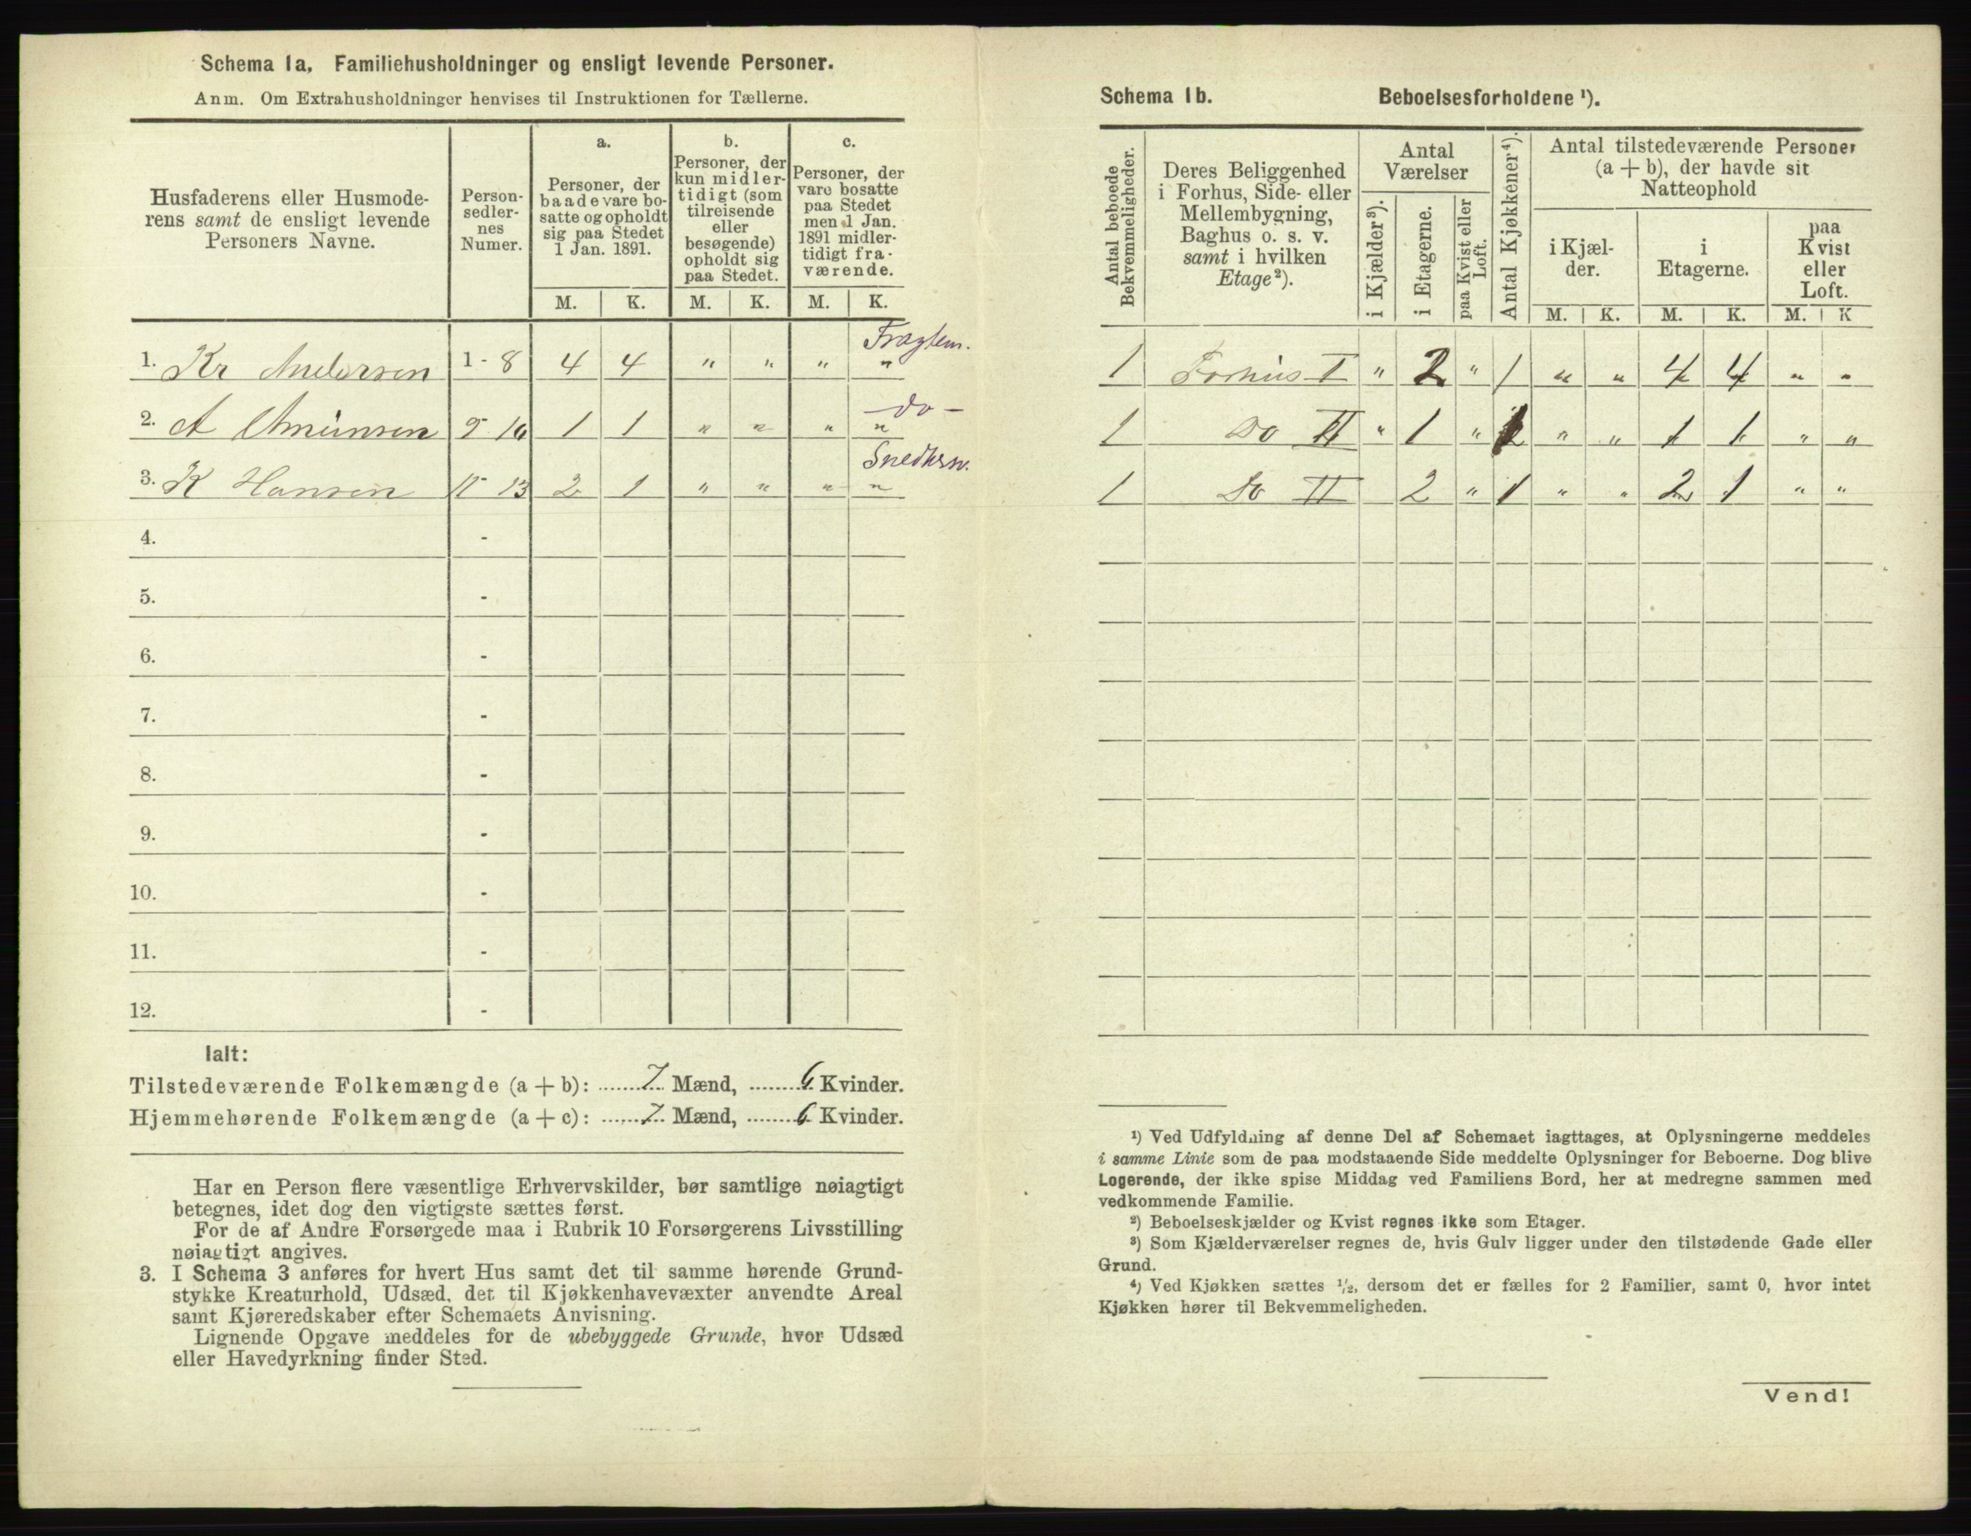 Schema 1a, Familiehusholdninger og ensligt levende Personer.
Anm. Om Extrahusholdninger henvises til Instruktionen for Tællerne.
Husfaderens eller Husmode-
rens samt de ensligt levende
Personers Navne.
Person-
sedler-
nes
Numer.
a.
Personer, der
baade vare bo-
satte og opholdt
sig paa Stedet
1 Jan. 1891.
b.
Personer, der
kun midler-
tidigt (som
tilreisende
eller
besøgende)
opholdt sig
paa Stedet.
c.
Personer, der
vare bosatte
paa Stedet
men 1 Jan.
1891 midler-
tidigt fra-
værende.
M. K. M. K. M. K.
1. Kr Andersen 1-8 4 4 " " " "
2. A Amunsen 9 10 1 1 " " " " do -
3. K Hansen 11 - 13 2 1 " " " "
4. -
5. -
6. -
7. -
8. -
9. -
10. -
11. -
12. -
Ialt:
Tilstedeværende Folkemængde (a + b): 7 Mænd, 6 Kvinder.
Hjemmehørende Folkemængde (a + c): 7 Mænd, 6 Kvinder.
Har en Person flere væsentlige Erhvervskilder, bør samtlige nøiagtigt
betegnes, idet dog den vigtigste sættes først.
For de af Andre Forsørgede maa i Rubrik 10 Forsørgerens Livsstilling
nøiagtigt angives.
3. I Schema 3 anføres for hvert Hus samt det til samme hørende Grund-
stykke Kreaturhold, Udsæd, det til Kjøkkenhavevæxter anvendte Areal
samt Kjøreredskaber efter Schemaets Anvisning.
Lignende Opgave meddeles for de ubebyggede Grunde, hvor Udsæd
eller Havedyrkning finder Sted.
Schema 1b. Beboelsesforholdene ¹).
Antal beboede
Bekvemmeligheder.
Deres Beliggenhed
i Forhus, Side- eller
Mellembygning,
Baghus o. s. v.
samt i hvilken
Etage²).
Antal
Værelser
i Kjælder³).
i Etagerne.
paa Kvist eller
Loft.
Antal Kjøkkener⁴).
Antal tilstedeværende Personer
(a + b), der havde sit
Natteophold
i Kjæl-
der.
i
Etagerne.
paa
Kvist
eller
Loft.
M. K. M. K. M. K
1 Forhus I " 2 " 1 " " 4 4 " "
1 do II " 1 " 1 " " 1 1 " "
1 do II 2 " 1 " " 2 1 " "
¹) Ved Udfyldning af denne Del af Schemaet iagttages, at Oplysningerne meddeles
i samme Linie som de paa modstaaende Side meddelte Oplysninger for Beboerne. Dog blive
Logerende, der ikke spise Middag ved Familiens Bord, her at medregne sammen med
vedkommende Familie.
²) Beboelseskjælder og Kvist regnes ikke som Etager.
³) Som Kjælderværelser regnes de, hvis Gulv ligger under den tilstødende Gade eller
Grund.
⁴) Ved Kjøkken sættes ½, dersom det er fælles for 2 Familier, samt 0, hvor intet
Kjøkken hører til Bekvemmeligheden.
Vend!